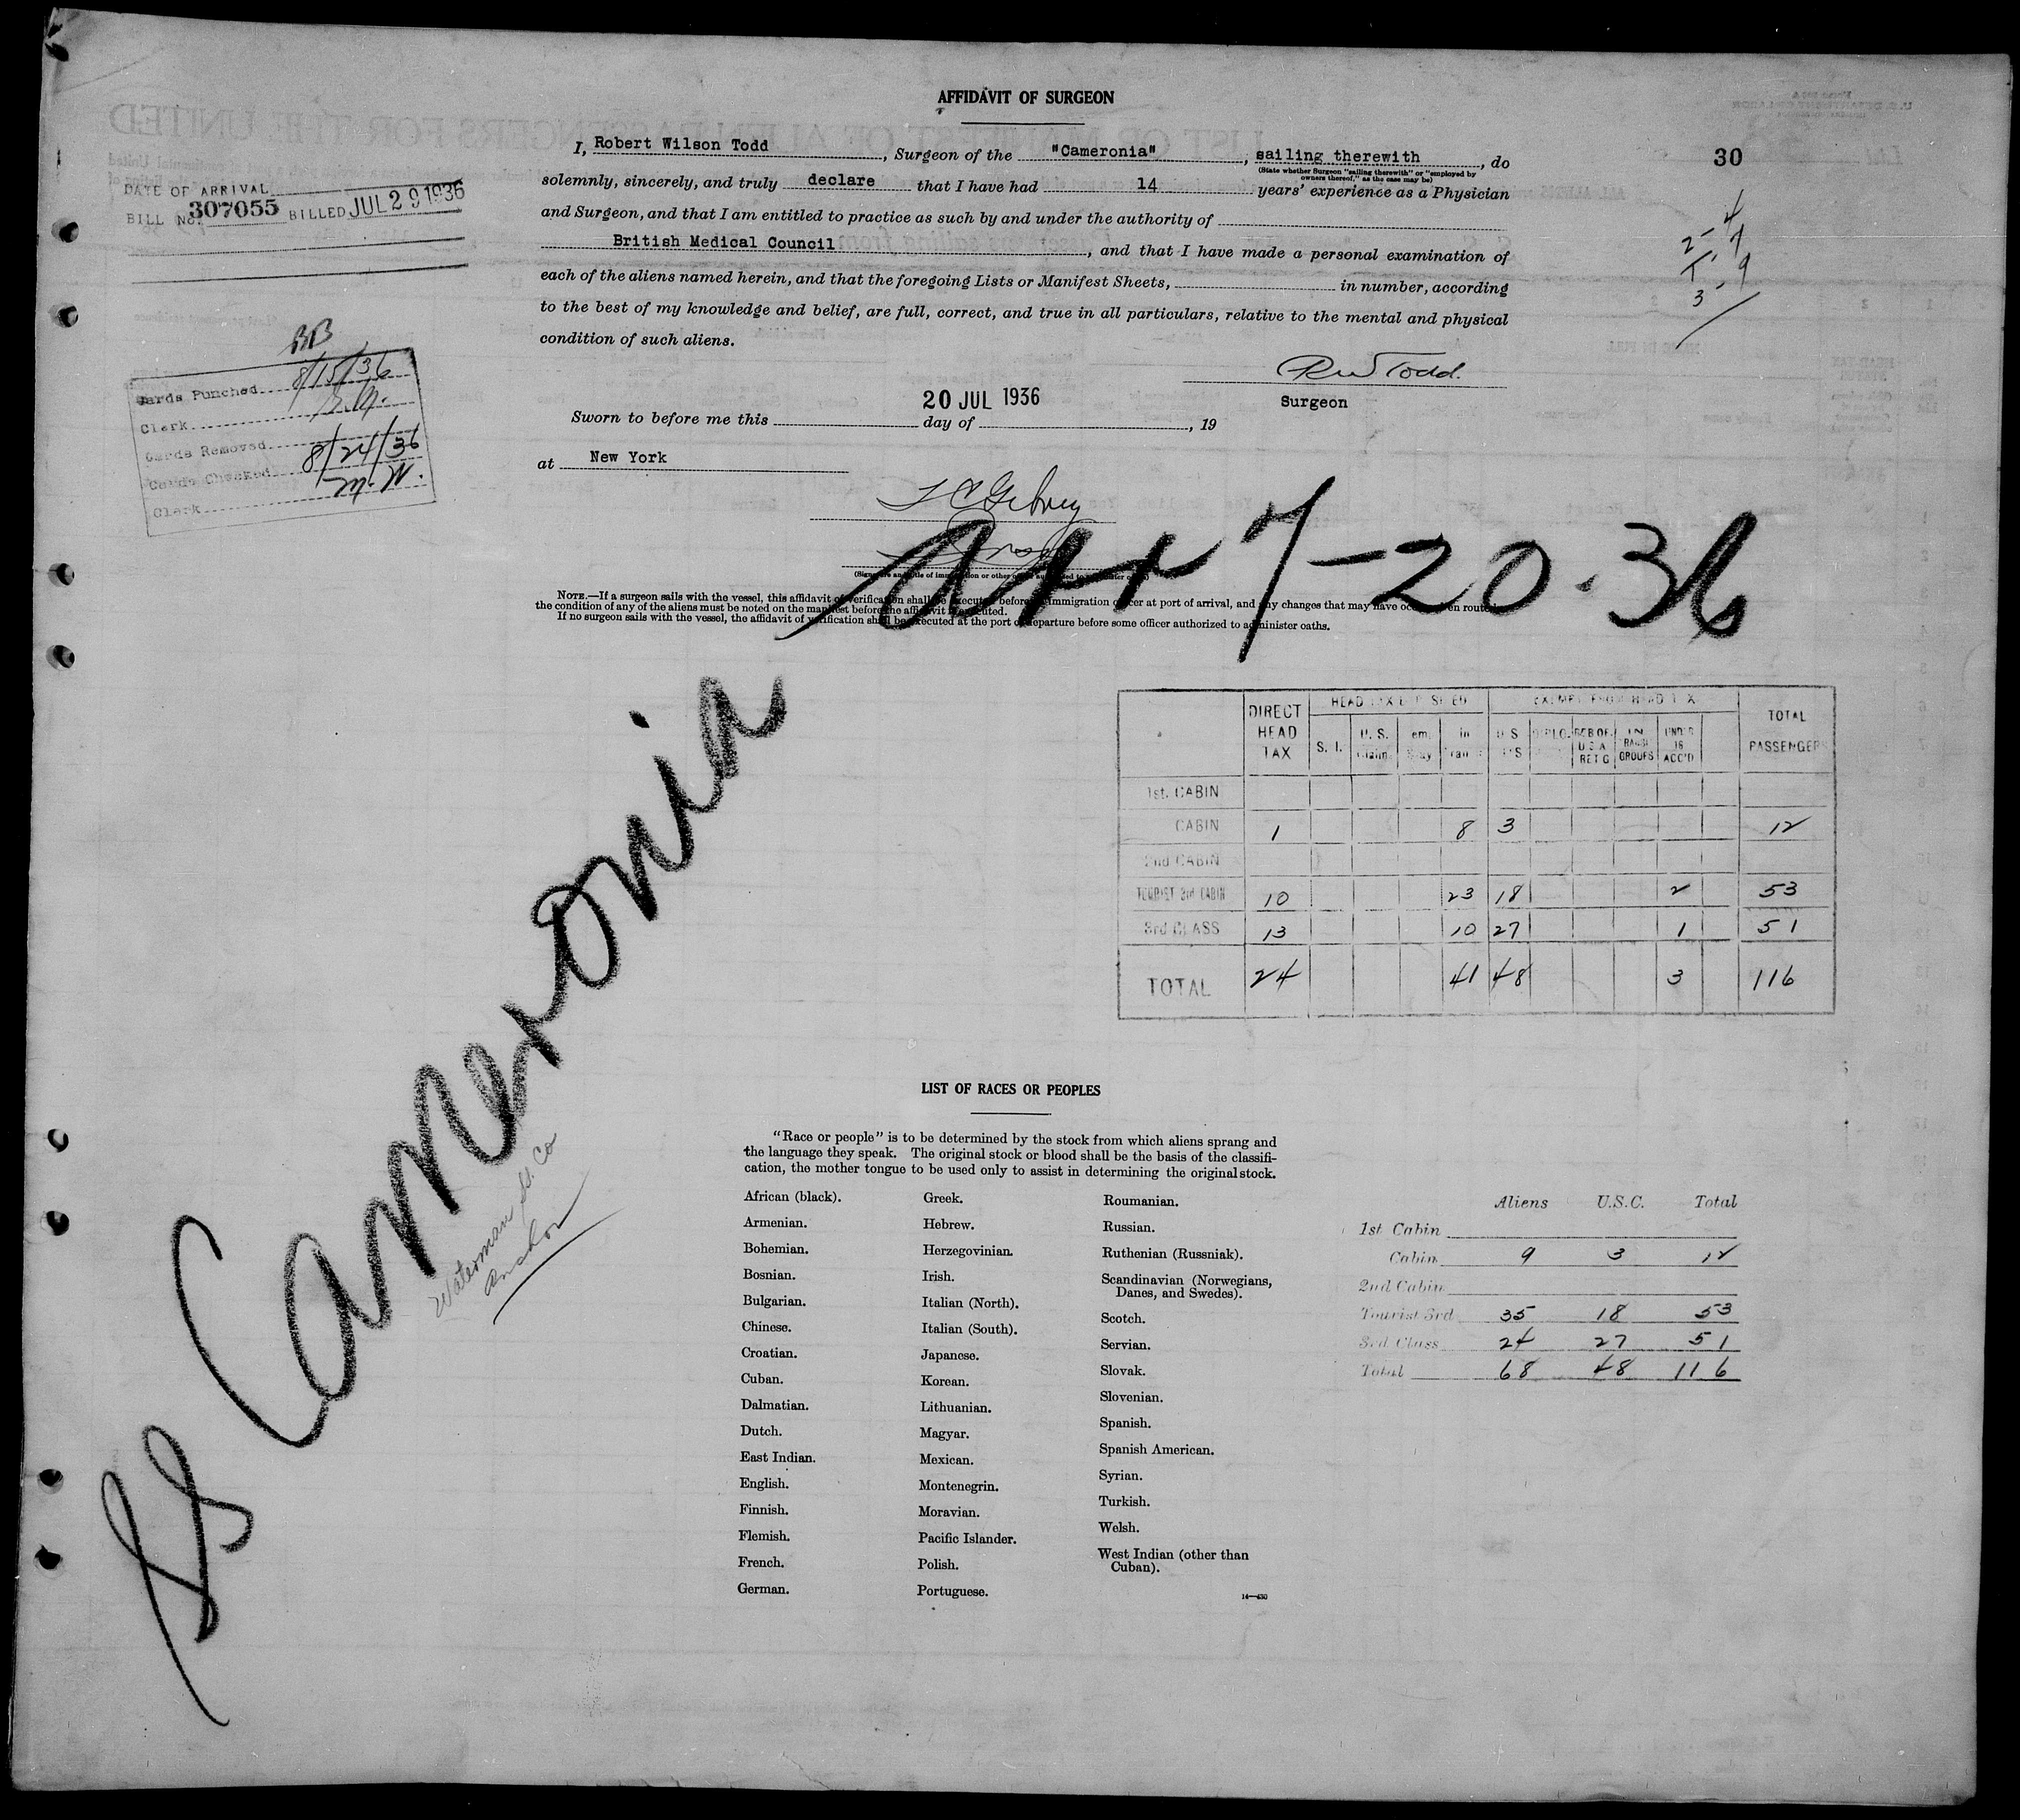 AFFIDAVIT OF SURGEON
I, Robert Wilson Todd, Surgeon of the "Cameronia", sailing therewith, do
(State whether Surgeon "sailing therewith" or "employed by
owners thereof," as the case may be)
solemnly, sincerely, and truly declare that I have had 14 years' experience as a Physician
and Surgeon, and that I am entitled to practice as such by and under the authority of
British Medical Council, and that I have made a personal examination of
each of the aliens named herein, and that the foregoing Lists or Manifest Sheets, in number, according
to the best of my knowledge and belief, are full, correct, and true in all particulars, relative to the mental and physical
condition of such aliens.
RW Todd.
Surgeon
20 JUL 1936
Sworn to before me this day of , 19
at New York
30
DATE OF ARRIVAL
BILL NO. 307055 BILLED JUL 29 1936
BB
Cards Punched 8/15/36
Clerk
Cards Removed
Cards Checked 8/24/36
Clerk M.W.
Arr 7-20-36
NOTE.—If a surgeon sails with the vessel, this affidavit of verification shall be executed before immigration officer at port of arrival, and any changes that may have en route
the condition of any of the aliens must be noted on the manifest before the affidavit is executed.
If no surgeon sails with the vessel, the affidavit of verification shall be executed at the port of departure before some officer authorized to administer oaths.
SS Cameronia
Waterman
DIRECT HEAD TAX
S. I.
U. S.
in
UNDER 16 ACC'D
TOTAL PASSENGERS
1st. CABIN
CABIN 1 8 3 12
2nd CABIN
TOURIST 3rd CABIN 10 23 18 2 53
3rd CLASS 13 10 27 1 51
TOTAL 24 41 48 3 116
LIST OF RACES OR PEOPLES
"Race or people" is to be determined by the stock from which aliens sprang and
the language they speak. The original stock or blood shall be the basis of the classifi-
cation, the mother tongue to be used only to assist in determining the original stock.
African (black).
Armenian.
Bohemian.
Bosnian.
Bulgarian.
Chinese.
Croatian.
Cuban.
Dalmatian.
Dutch.
East Indian.
English.
Finnish.
Flemish.
French.
German.
Greek.
Hebrew.
Herzegovinian.
Irish.
Italian (North).
Italian (South).
Japanese.
Korean.
Lithuanian.
Magyar.
Mexican.
Montenegrin.
Moravian.
Pacific Islander.
Polish.
Portuguese.
Roumanian.
Russian.
Ruthenian (Russniak).
Scandinavian (Norwegians,
Danes, and Swedes).
Scotch.
Servian.
Slovak.
Slovenian.
Spanish.
Spanish American.
Syrian.
Turkish.
Welsh.
West Indian (other than
Cuban).
Aliens U.S.C. Total
1st Cabin
Cabin 9 3 12
2nd Cabin
Tourist 3rd 35 18 53
3rd Class 24 27 51
Total 68 48 116